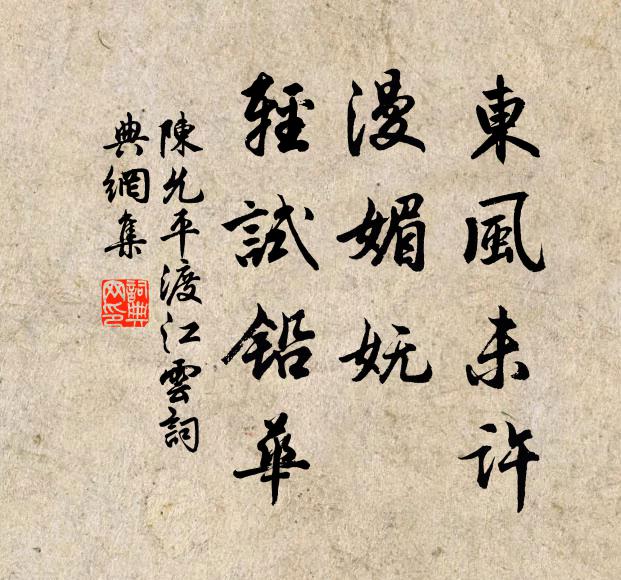 東風未許
漫媚妩
輕試鉛華
陳允平渡江雲詞
典網集
詞典
网印